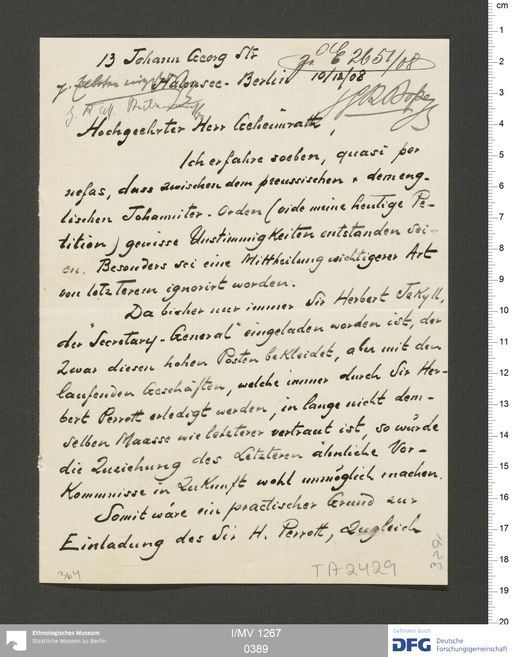 13 Johann Georg Str
zu E 2651/08
Halensee-Berlin 10/12/08
Hochgeehrter Herr Geheimrath,
Ich erfahre soeben, quasi per
nefas, dass zwischen dem preussischen + dem eng-
lischen Johanniter-Orden (vide meine heutige Pe-
tition) gewisse Unstimmigkeiten entstanden sei-
en. Besonders sei eine Mittheilung wichtigerer Art
von letzterem ignorirt worden.
Da bisher nur immer Sir Herbert Jekyll,
der "Secretary-General" eingeladen worden ist, der
zwar diesen hohen Posten bekleidet, aber mit den
laufenden Geschäften, welche immer durch Sir Her-
bert Perrott erledigt werden, in lange nicht dem-
selben Maasse wie letzterer vertraut ist, so würde
die Zuziehung des Letzteren ähnliche Vor-
Kommnisse in Zukunft wohl unmöglich machen.
Somit wäre ein practischer Grund zur
Einladung des Sir H. Perrott, zugleich
364
TA2429
329
cm
1
2
3
4
5
6
7
8
9
10
11
12
13
14
15
16
17
18
19
20
Ethnologisches Museum
Staatliche Museen zu Berlin
I/MV 1267
0389
Gefördert durch
DFG Deutsche
Forschungsgemeinschaft